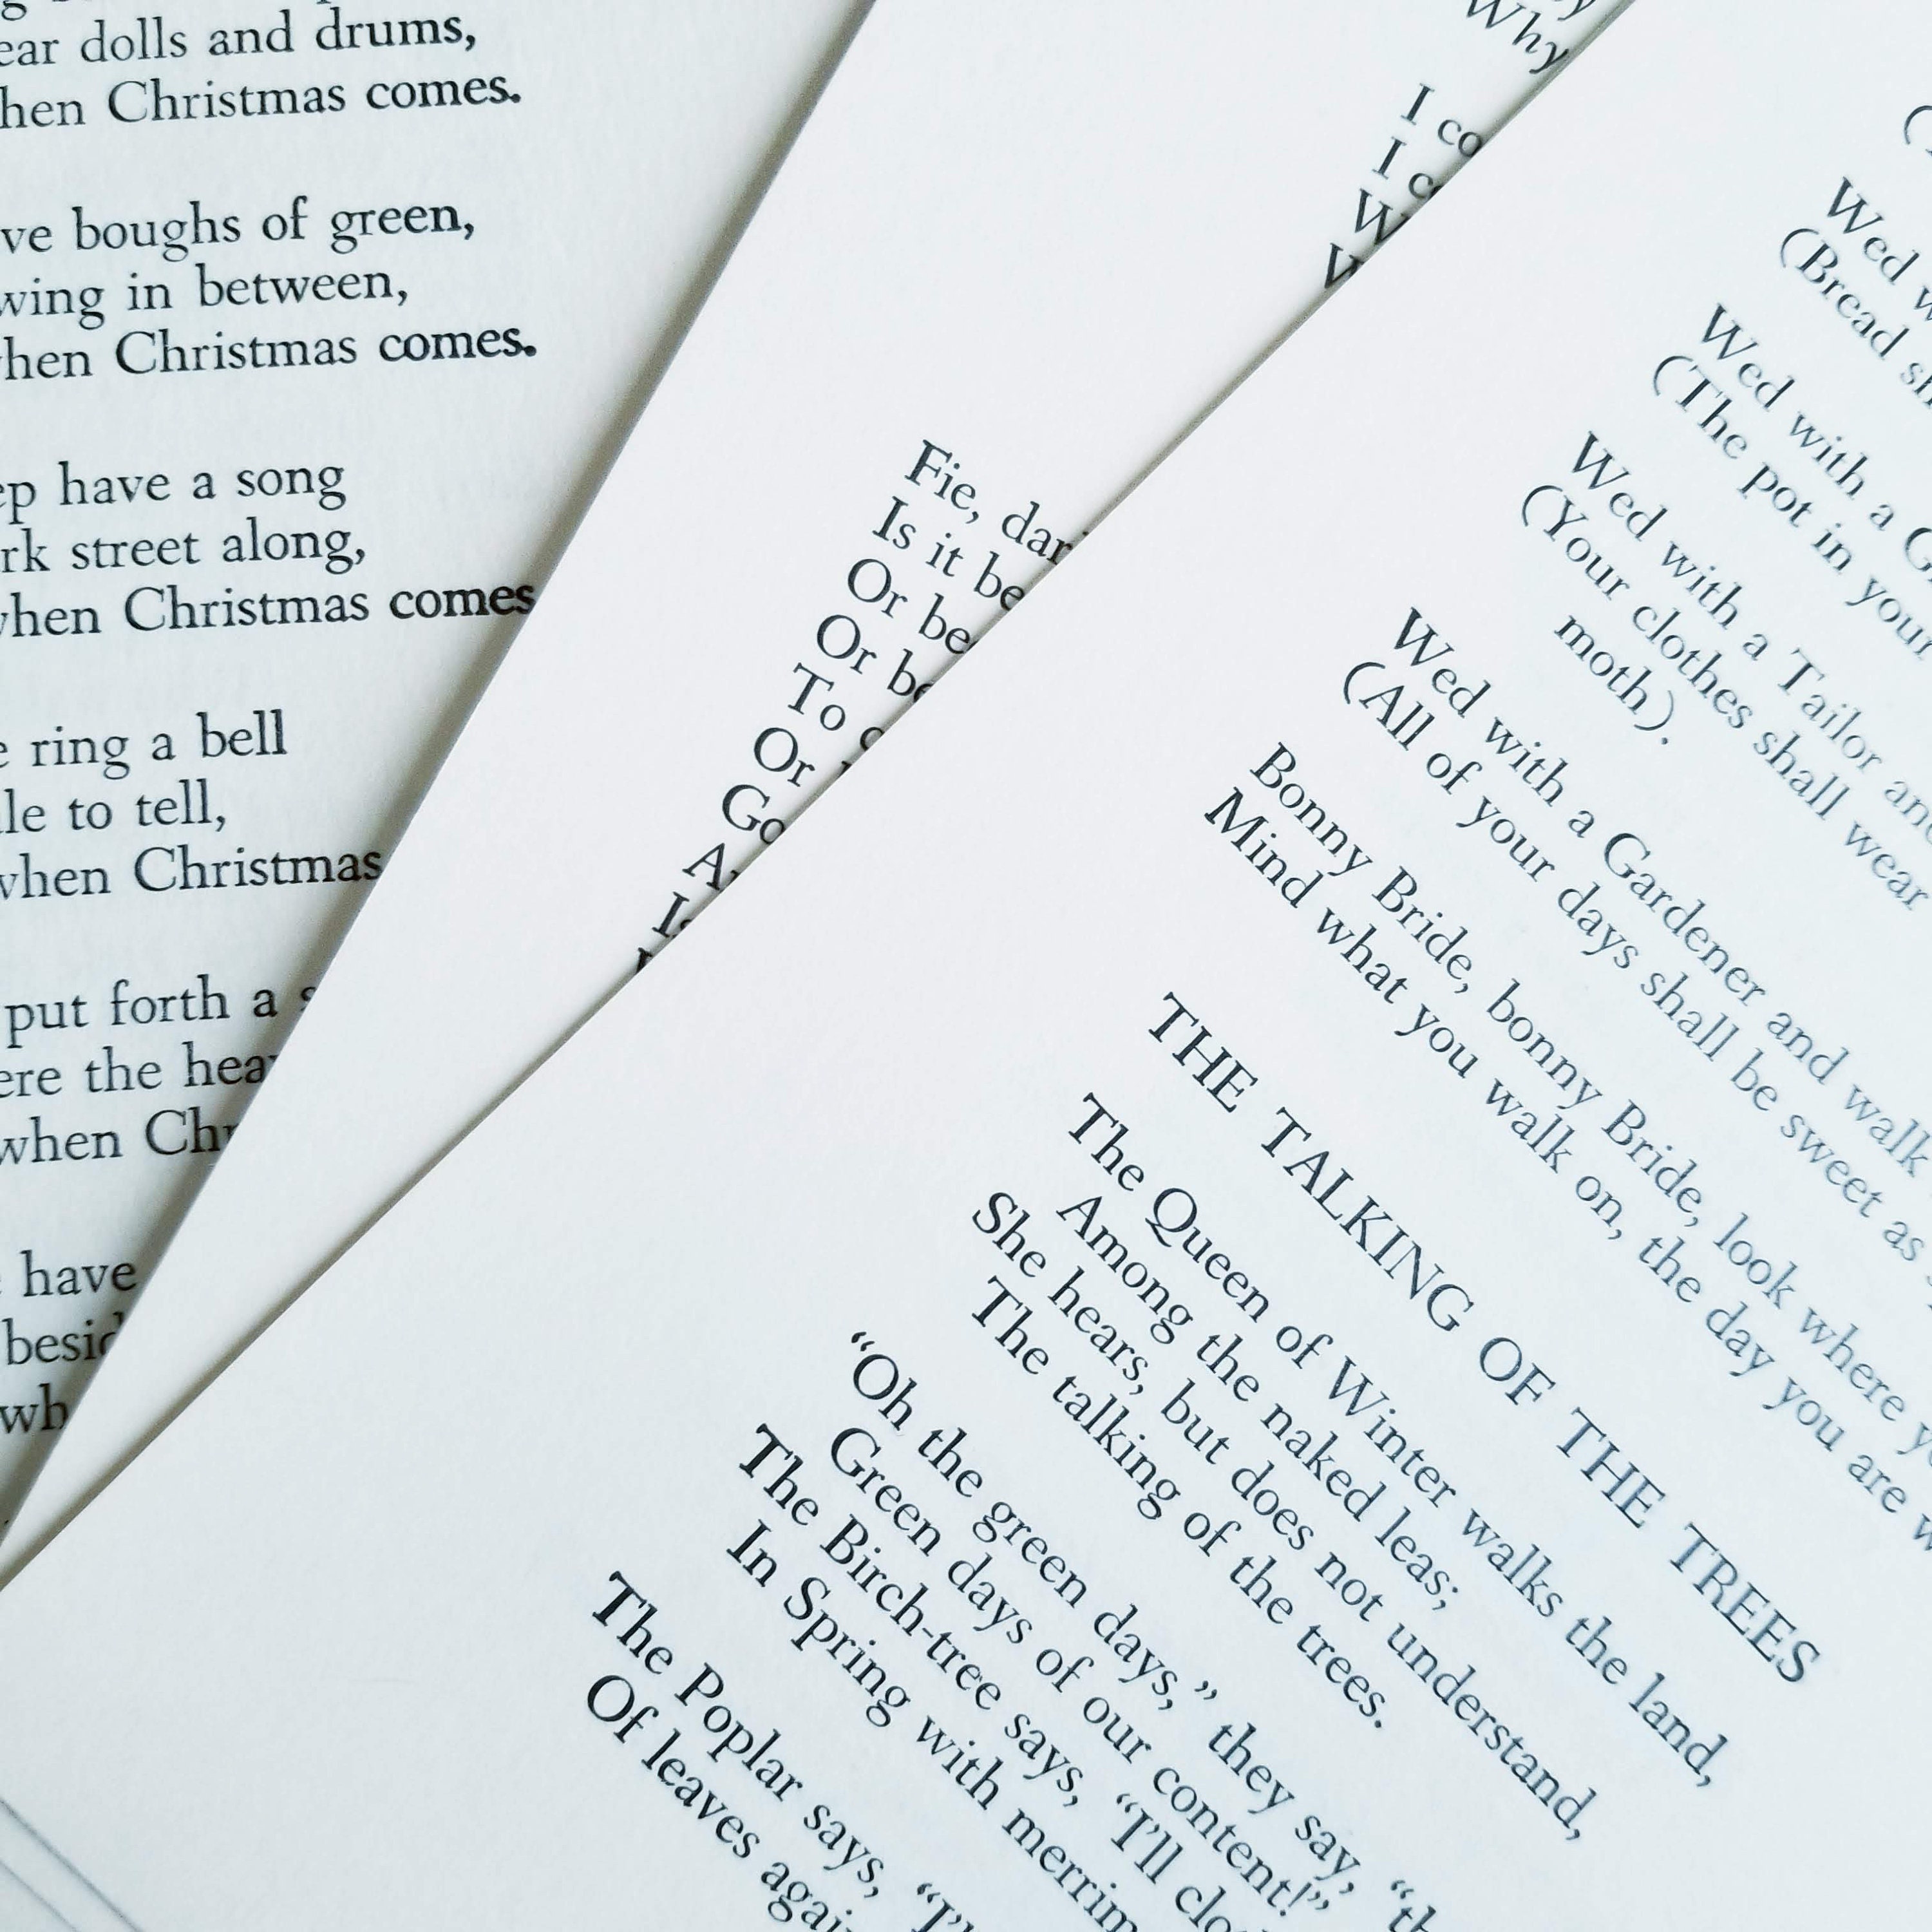 dolls and drums,
Christmas comes.
boughs of green,
in between,
Christmas comes.
have a song
street along,
Christmas comes
ring a bell
to tell,
when Christmas
put forth a
the
when
have
Why
I
I
Fie,
Is it
Or
Or
To
Or
Wed
(Bread
Wed with a
(The pot in your
Wed with a Tailor
(Your clothes shall wear
moth).
Wed with a Gardener and walk
(All of your days shall be sweet as
Bonny Bride, bonny Bride, look where
Mind what you walk on, the day you are
THE TALKING OF THE TREES
The Queen of Winter walks the land,
Among the naked leas;
She hears, but does not understand,
The talking of the trees.
“Oh the green days,” they say,
Green days of our content!”
The Birch-tree says, “I’ll
In Spring with
The Poplar says,
Of leaves